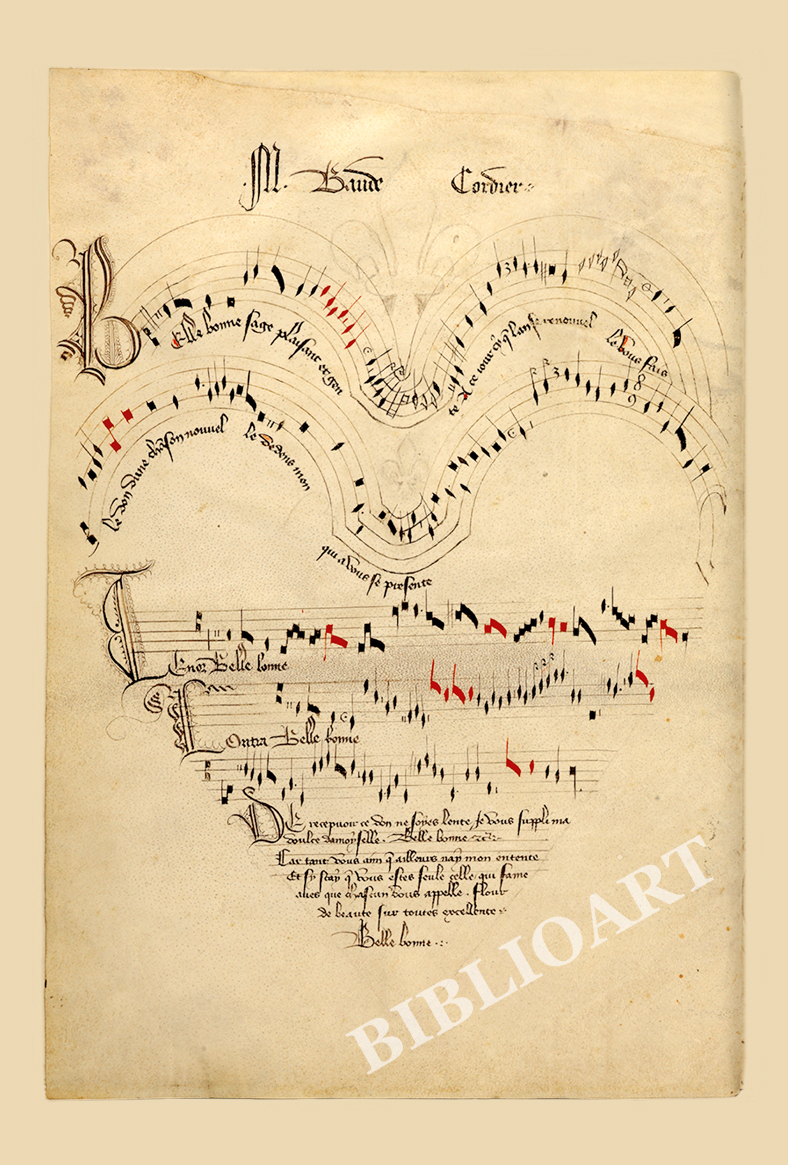 M. Baude Cordier
Belle bonne sage plaisant et gen
te A ce jour cy q̄ lan se renouuel
le vous fais
le don dune chāson nouuel
le dedens mon
qui a vous se presente
Tenor Belle bonne
Contra Belle bonne
DE recepuoir ce don ne soyes lente, Je vous suppli ma
doulce damoyselle. Belle bonne
Car tant vous aim q̄ ailleurs nay mon entente
Et sy scay q̄ vous estes seule celle qui fame
aues que chascun vous appelle. Flour
de beaute sur toutes excellente
Belle bonne
BIBLIOART